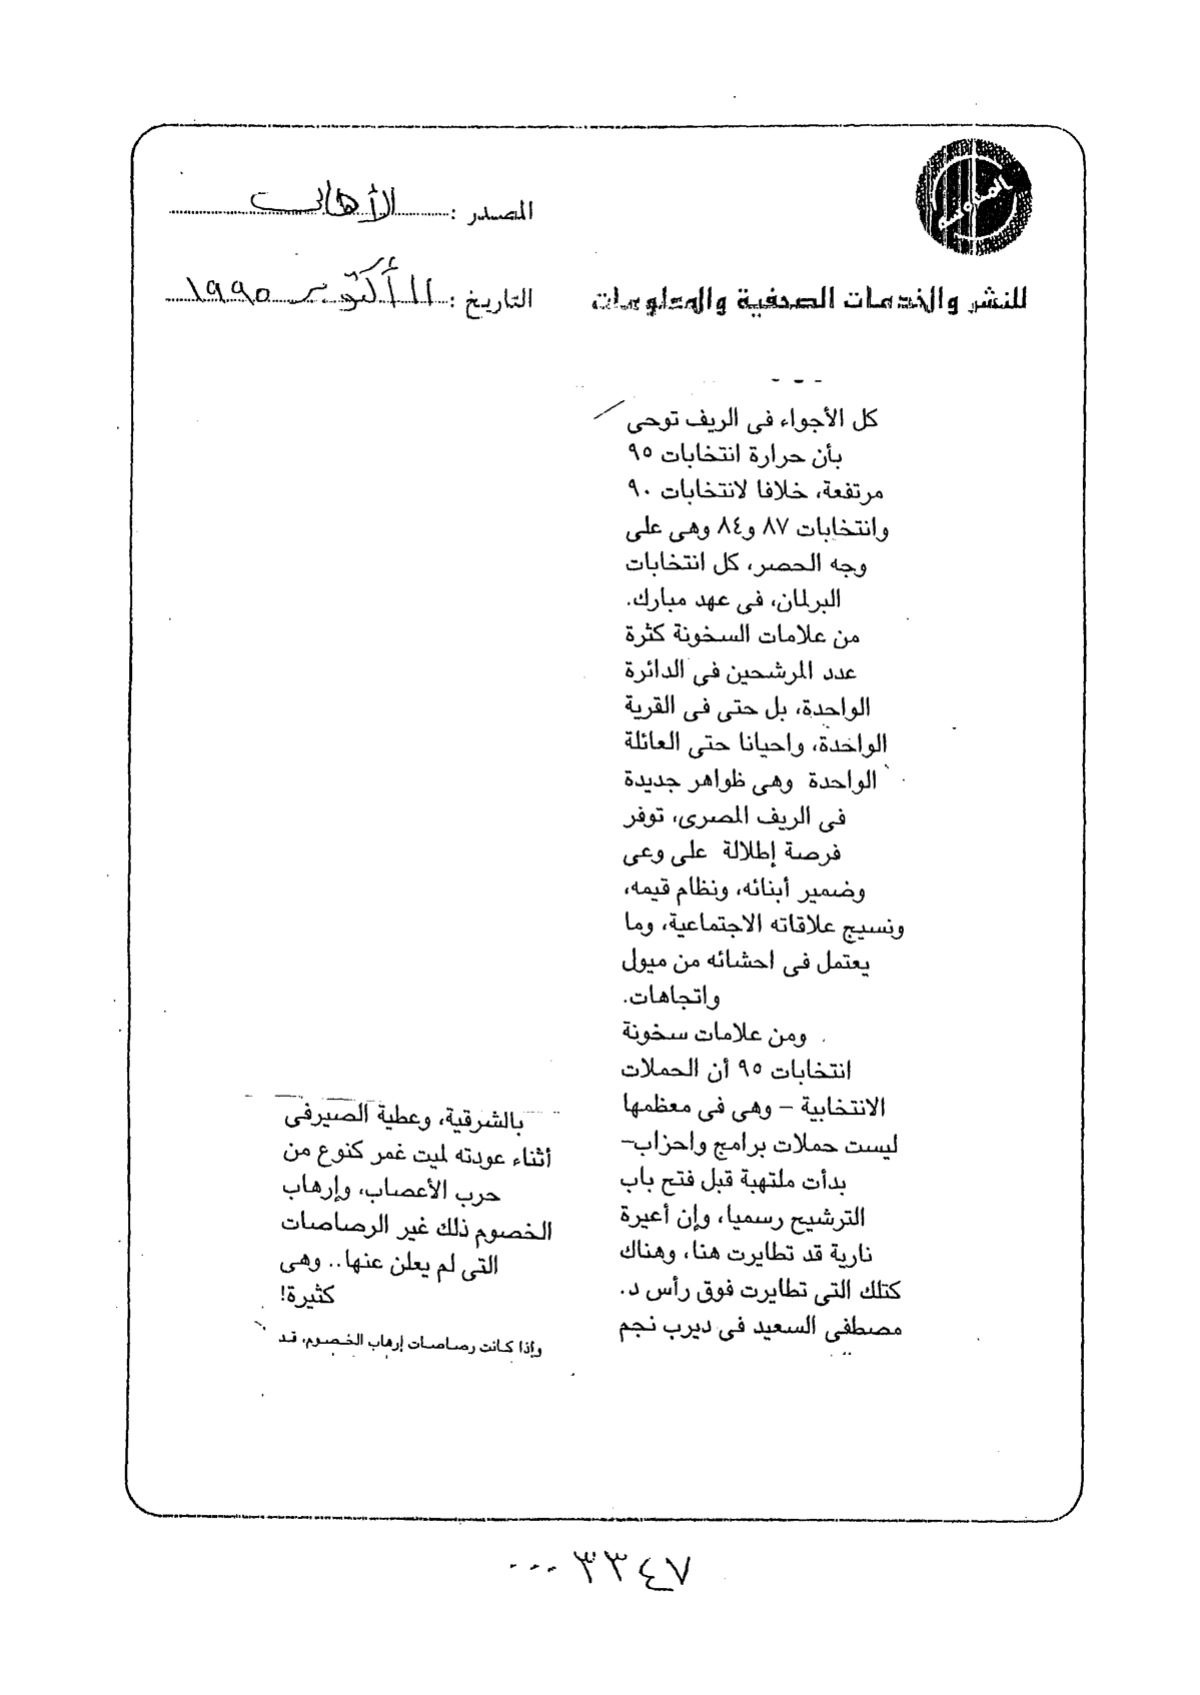 المحروسة
المصدر : الأهالى
للنشر والخدمات الصحفية والمعلومات
التاريخ : ١١ أكتوبر ١٩٩٥
كل الأجواء فى الريف توحى
بأن حرارة انتخابات ٩٥
مرتفعة، خلافا لانتخابات ٩٠
وانتخابات ٨٧ و٨٤ وهى على
وجه الحصر، كل انتخابات
البرلمان، فى عهد مبارك.
من علامات السخونة كثرة
عدد المرشحين فى الدائرة
الواحدة، بل حتى فى القرية
الواحدة، واحيانا حتى العائلة
الواحدة وهى ظواهر جديدة
فى الريف المصرى، توفر
فرصة إطلالة على وعى
وضمير أبنائه، ونظام قيمه،
ونسيج علاقاته الاجتماعية، وما
يعتمل فى احشائه من ميول
واتجاهات.
ومن علامات سخونة
انتخابات ٩٥ أن الحملات
الانتخابية – وهى فى معظمها
ليست حملات برامج واحزاب–
بدأت ملتهبة قبل فتح باب
الترشيح رسميا، وإن أعيرة
نارية قد تطايرت هنا، وهناك
كتلك التى تطايرت فوق رأس د.
مصطفى السعيد فى ديرب نجم
بالشرقية، وعطية الصيرفى
أثناء عودته لميت غمر كنوع من
حرب الأعصاب، وإرهاب
الخصوم ذلك غير الرصاصات
التى لم يعلن عنها.. وهى
كثيرة!
وإذا كانت رصاصات إرهاب الخصوم، قد
٣٣٤٧٠٠٠